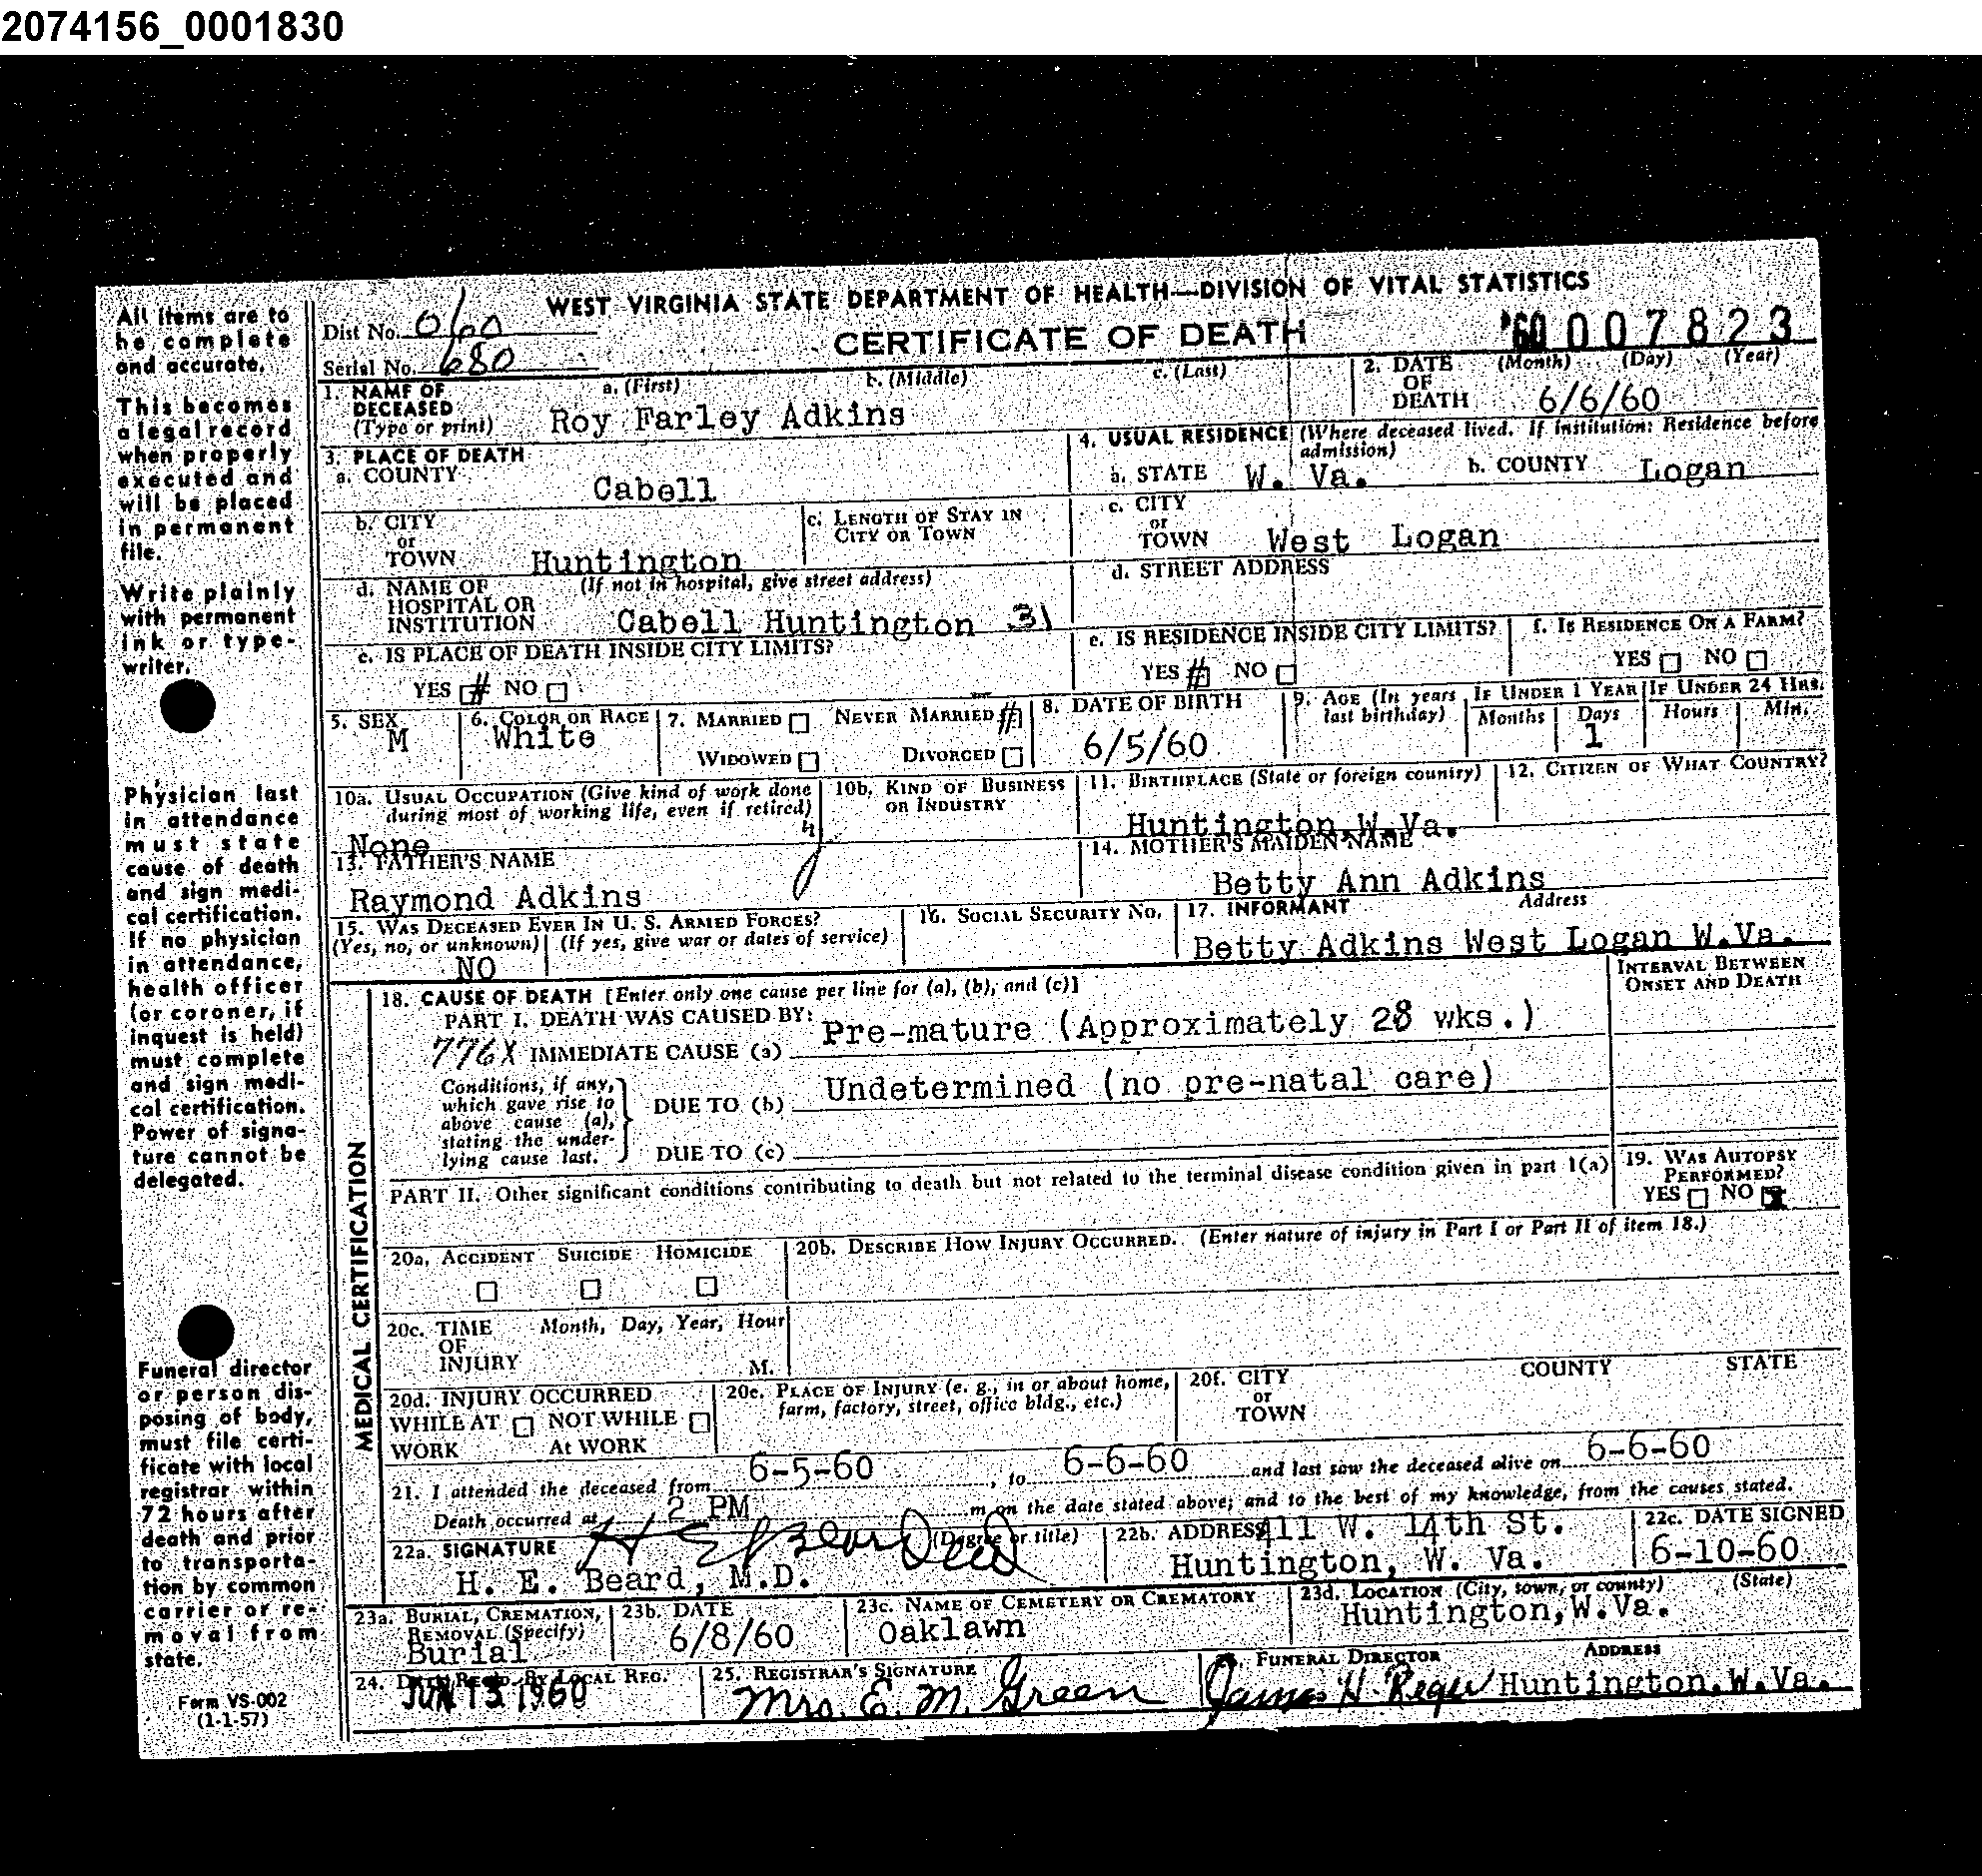 2074156_0001830
All items are to be complete and accurate.
This becomes a legal record when properly executed and will be placed in permanent file.
Write plainly with permanent ink or typewriter.
Physician last in attendance must state cause of death and sign medical certification. If no physician in attendance, health officer (or coroner, if inquest is held) must complete and sign medical certification. Power of signature cannot be delegated.
Funeral director or person disposing of body, must file certificate with local registrar within 72 hours after death and prior to transportation by common carrier or removal from state.
Form VS-002
(1-1-57)
WEST VIRGINIA STATE DEPARTMENT OF HEALTH—DIVISION OF VITAL STATISTICS
Dist No. 0600
CERTIFICATE OF DEATH
'60 007823
Serial No. 680
1. NAME OF DECEASED (Type or print) a. (First) b. (Middle) c. (Last)
Roy Farley Adkins
2. DATE OF DEATH (Month) (Day) (Year)
6/6/60
3. PLACE OF DEATH
a. COUNTY Cabell
4. USUAL RESIDENCE (Where deceased lived. If institution: Residence before admission)
a. STATE W. Va. b. COUNTY Logan
b. CITY or TOWN Huntington
c. LENGTH OF STAY IN CITY OR TOWN
c. CITY or TOWN West Logan
d. NAME OF HOSPITAL OR INSTITUTION (If not in hospital, give street address)
Cabell Huntington 31
d. STREET ADDRESS
e. IS PLACE OF DEATH INSIDE CITY LIMITS?
YES # NO
e. IS RESIDENCE INSIDE CITY LIMITS?
YES # NO
f. IS RESIDENCE ON A FARM?
YES NO
5. SEX M
6. COLOR OR RACE White
7. MARRIED NEVER MARRIED #
WIDOWED DIVORCED
8. DATE OF BIRTH 6/5/60
9. AGE (In years last birthday)
IF UNDER 1 YEAR Months Days 1
IF UNDER 24 HRS. Hours Min.
10a. USUAL OCCUPATION (Give kind of work done during most of working life, even if retired)
None
10b. KIND OF BUSINESS OR INDUSTRY
11. BIRTHPLACE (State or foreign country)
Huntington W.Va.
12. CITIZEN OF WHAT COUNTRY?
13. FATHER'S NAME
Raymond Adkins
14. MOTHER'S MAIDEN NAME
Betty Ann Adkins
15. WAS DECEASED EVER IN U. S. ARMED FORCES?
(Yes, no, or unknown) (If yes, give war or dates of service)
NO
16. SOCIAL SECURITY NO.
17. INFORMANT Address
Betty Adkins West Logan W.Va.
MEDICAL CERTIFICATION
18. CAUSE OF DEATH [Enter only one cause per line for (a), (b), and (c)]
INTERVAL BETWEEN ONSET AND DEATH
PART I. DEATH WAS CAUSED BY:
776X IMMEDIATE CAUSE (a) Pre-mature (Approximately 28 wks.)
Conditions, if any, which gave rise to above cause (a), stating the underlying cause last.
DUE TO (b) Undetermined (no pre-natal care)
DUE TO (c)
PART II. Other significant conditions contributing to death but not related to the terminal disease condition given in part 1(a)
19. WAS AUTOPSY PERFORMED?
YES NO X
20a. ACCIDENT SUICIDE HOMICIDE
20b. DESCRIBE HOW INJURY OCCURRED. (Enter nature of injury in Part I or Part II of item 18.)
20c. TIME OF INJURY Month, Day, Year, Hour
M.
20d. INJURY OCCURRED
WHILE AT WORK NOT WHILE At WORK
20e. PLACE OF INJURY (e. g., in or about home, farm, factory, street, office bldg., etc.)
20f. CITY or TOWN COUNTY STATE
21. I attended the deceased from 6-5-60, to 6-6-60 and last saw the deceased alive on 6-6-60
Death occurred at 2 PM m on the date stated above; and to the best of my knowledge, from the causes stated.
22a. SIGNATURE H E Beard (Degree or title)
H. E. Beard, M.D.
22b. ADDRESS 411 W. 14th St.
Huntington, W. Va.
22c. DATE SIGNED
6-10-60
23a. BURIAL, CREMATION, REMOVAL (Specify)
Burial
23b. DATE
6/8/60
23c. NAME OF CEMETERY OR CREMATORY
Oaklawn
23d. LOCATION (City, town, or county) (State)
Huntington, W.Va.
24. DATE RECD. BY LOCAL REG.
JUN 13 1960
25. REGISTRAR'S SIGNATURE
Mrs. E. M. Green
FUNERAL DIRECTOR ADDRESS
James H. Huntington, W.Va.